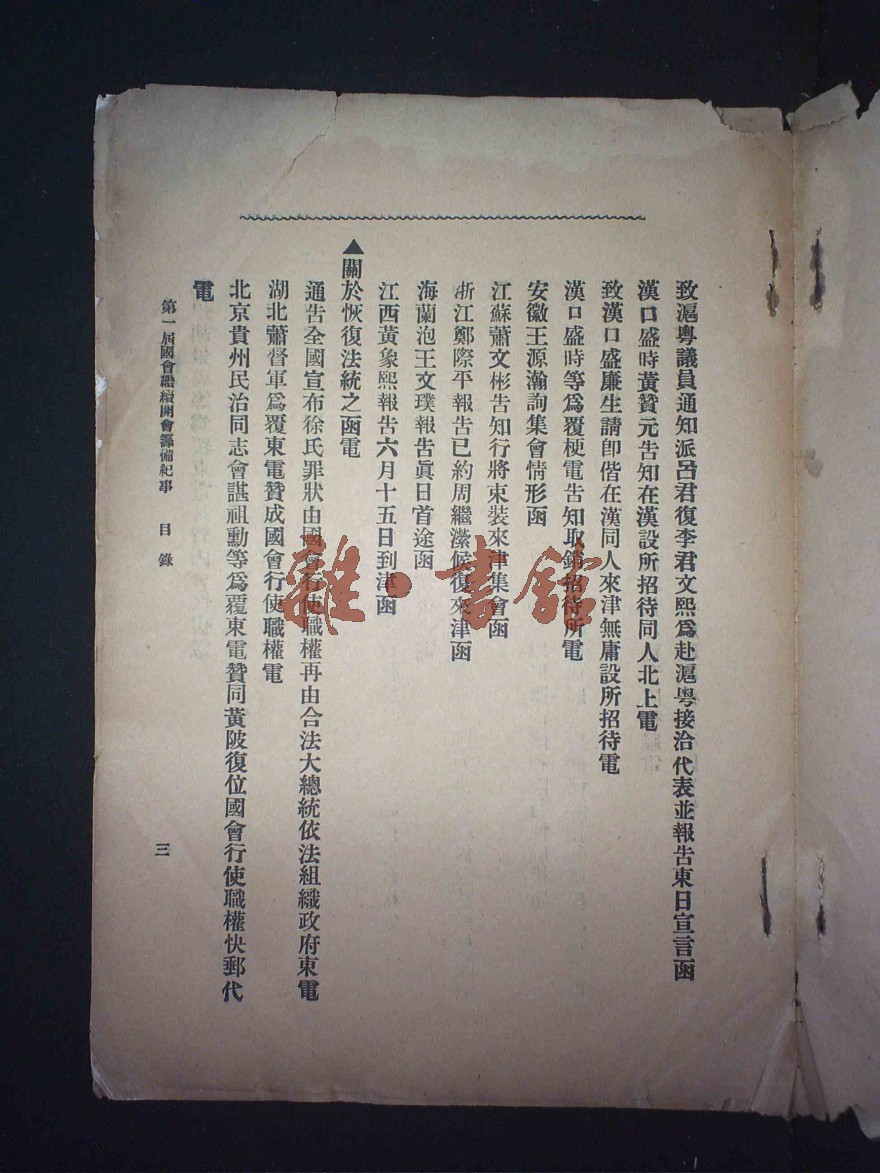 致滬粤議員通知派呂君復李君文熙爲赴滬粤接洽代表並報吿東日宣言函
漢口盛時黃贊元吿知在漢設所招待同人北上電
致漢口盛廉生請卽偕在漢同人來津無庸設所招待電
漢口盛時等爲覆梗電吿知取銷招待所電
安徽王源瀚詢集會情形函
江蘇蕭文彬吿知行將束裝來津集會函
浙江鄭際平報吿已約周繼瀠候復來津函
海蘭泡王文璞報吿眞日首途函
江西黃象熙報吿六月十五日到津函
▲關於恢復法統之函電
通吿全國宣布徐氏罪狀由國會行使職權再由合法大總統依法組織政府東電
湖北蕭督軍爲覆東電贊成國會行使職權電
北京貴州民治同志會諶祖勳等爲覆東電贊同黃陂復位國會行使職權快郵代
電
第一屆國會繼續開會籌備紀事 目錄
三
雜·書館